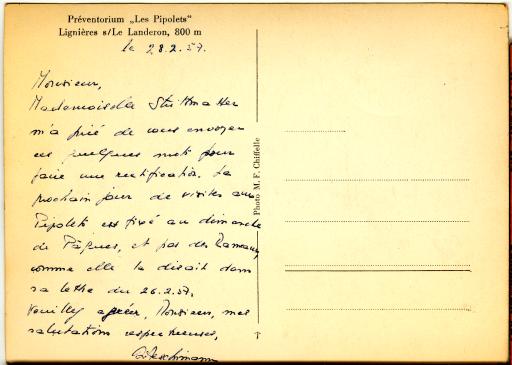 Préventorium „Les Pipolets"
Lignières s/Le Landeron, 800 m
le 28.2.57.
Monsieur,
Mademoiselle
m'a prié de vous envoyer
ces quelques mots pour
faire une rectification. Le
prochain jour de visites aux
Pipolets est fixé au dimanche
de Pâques, et pas des Rameaux,
comme elle le disait dans
sa lettre du 26.2.57.
Veuillez agréer, Monsieur, mes
salutations respectueuses,
Photo M. F. Chiffelle